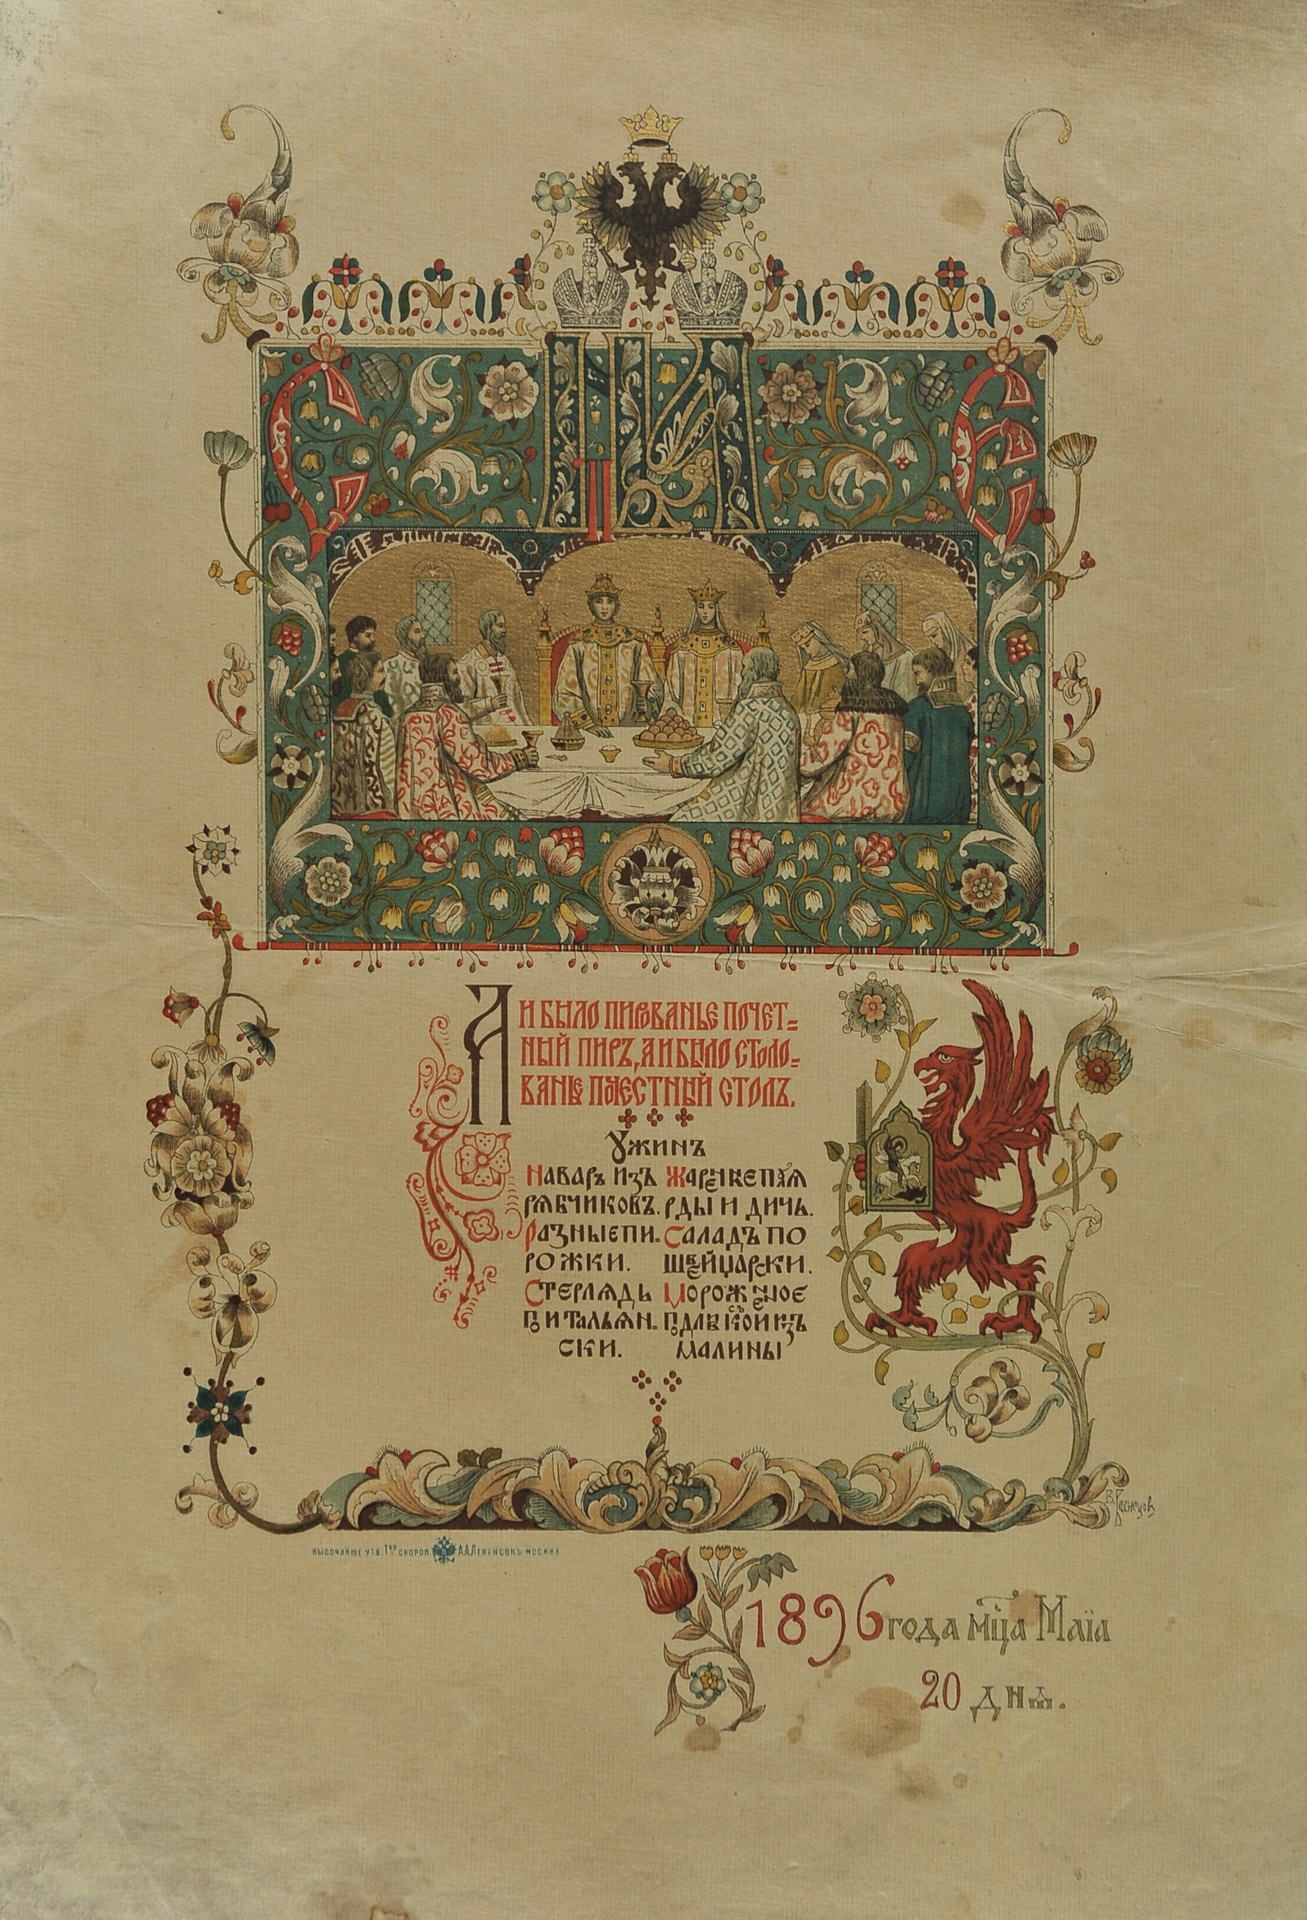 А И БЫЛО ПИРОВАНЬЕ ПОЧЕТ=
НЫЙ ПИРЪ, А И БЫЛО СТОЛО=
ВАНЬЕ ПОЧЕСТНЫЙ СТОЛЪ.
УЖИНЪ
НАВАРЪ ИЗЪ
РЯБЧИКОВЪ.
РАЗНЫЕ ПИ-
РОЖКИ.
СТЕРЛЯДЬ
ПО ИТАЛЬЯН-
СКИ.
ЖАРЕНЫЕ ПУЛЯ
РДЫ И ДИЧЬ.
САЛАДЪ ПО
ШВЕЙЦАРСКИ.
МОРОЖЕНОЕ
СЪ ПОДЛИВКОЙ ИЗЪ
МАЛИНЫ
В. Васнецовъ
ВЫСОЧАЙШЕ УТВ. Т-ВО СКОРОП. А.А. ЛЕВЕНСОНЪ МОСКВА.
1896 года мц̃а Маїа
20 дня.